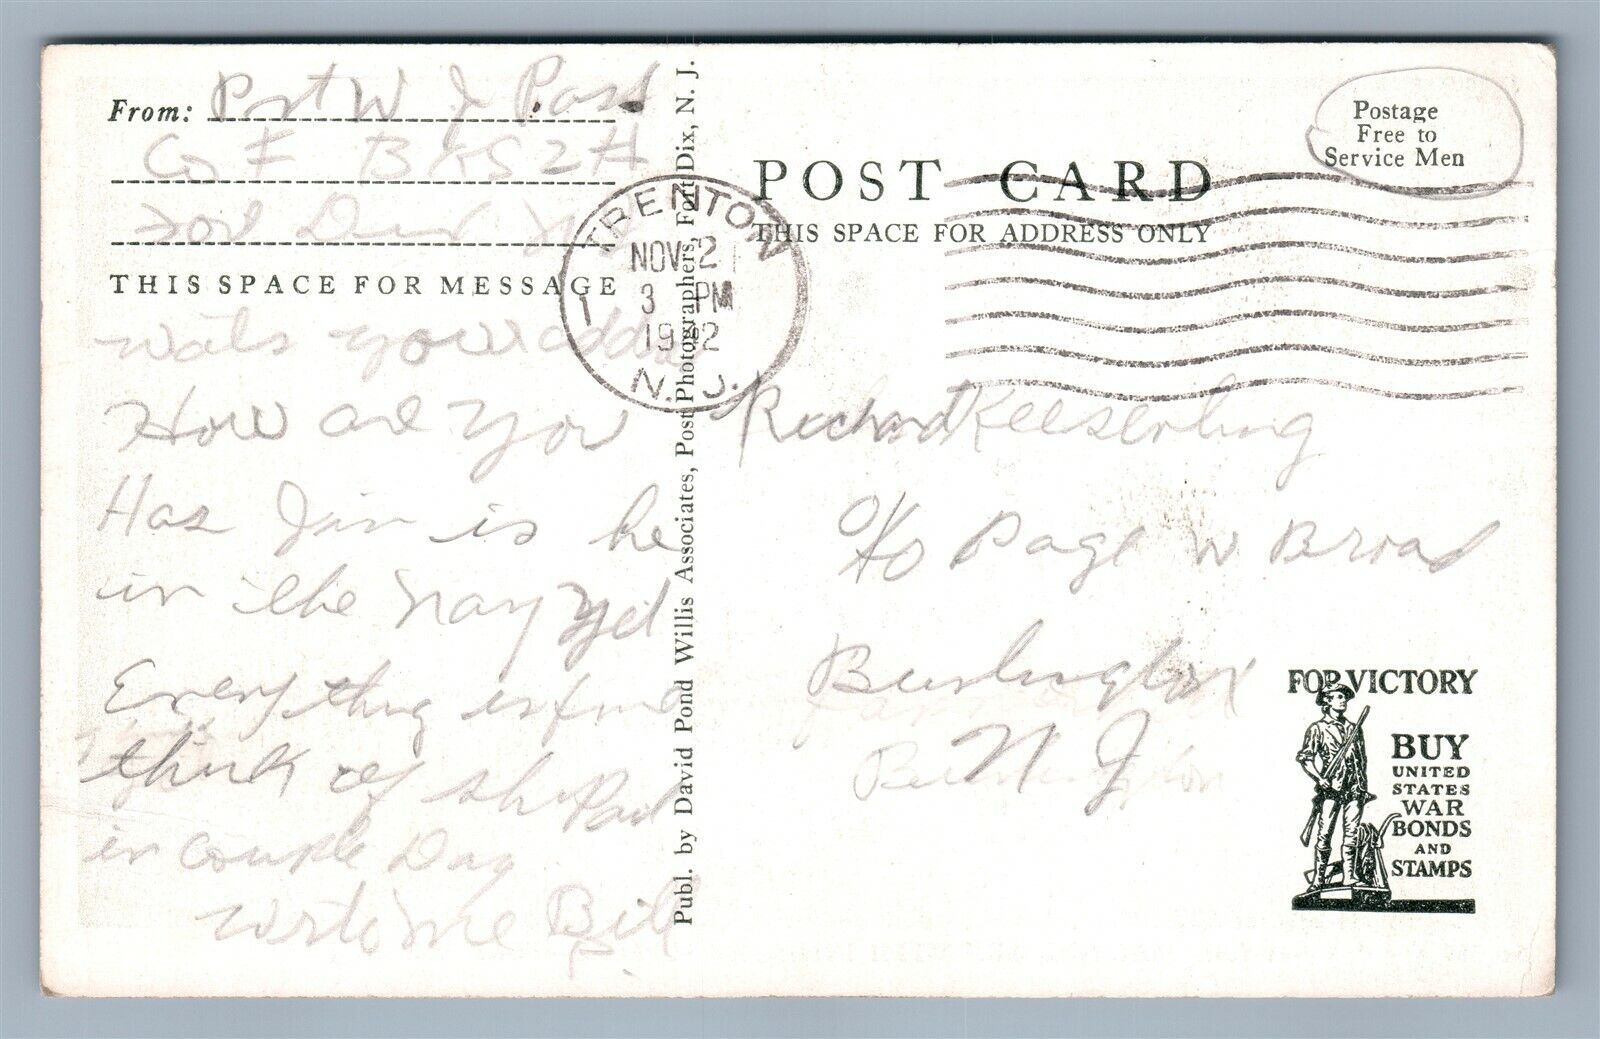 From: Pvt W J Pass
Co F
THIS SPACE FOR MESSAGE
wats your add
How are you
Has Jim is he
in the navy yd
Everything is fine
think of sh
in couple Day
write me Bill
P.
Publ. by David Pond Willis Associates, Post Photographers, Fort Dix, N. J.
TRENTON
NOV 2
3 PM
1942
N. J.
1
Postage
Free to
Service Men
POST CARD
THIS SPACE FOR ADDRESS ONLY
Richard Keeserling
c/o Page W Broad
Burlington
N J
Burlington
FOR VICTORY
BUY
UNITED
STATES
WAR
BONDS
AND
STAMPS